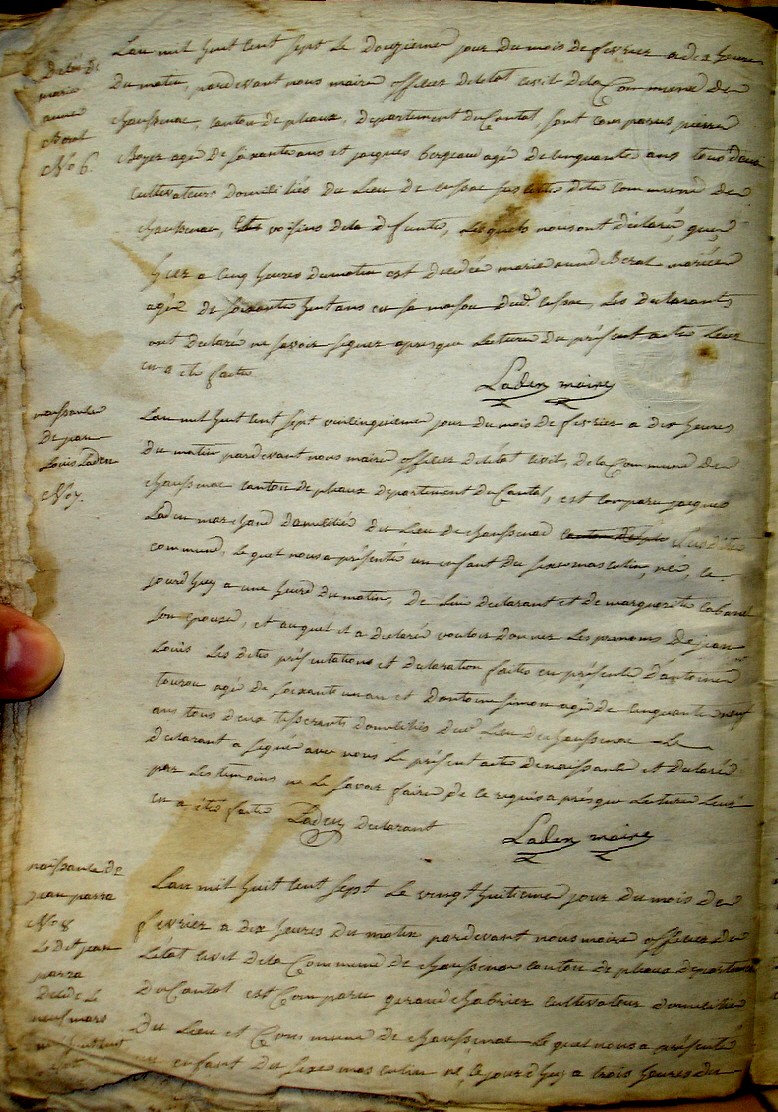 Deces De
marie
anne
Borat
No 6.
Lan mil huit cent sept le Douzieme jour du mois de fevrier a dix heures
Du matin, pardevant nous maire officier de letat civil dela Commune de
chaussenac, canton de pleaux, departement du Cantal, sont comparus pierre
Boyer agé De soixante ans et jacques bergeau agé de cinquante ans tous deux
cultivateurs Domiciliés Du Lieu De cussac susdite commune De
chaussenac, voisins dela defunte, Lesquels nous ont déclaré, que
hier a cinq heures du matin est décédée marie anne Borat
agée De soixante huit ans en sa maison dud. cussac, Les Declarants
ont declaré ne savoir signer apres que Lecture Du présent acte Leur
en a été faite
Laden maire
naissance
De jean
Louis Laden
No 7.
Lan mil huit cent sept vincinquieme jour du mois de fevrier a dix heures
Du matin pardevant nous maire officier de létat civil, dela Commune De
chaussenac canton de pleaux Departement du Cantal, est comparu jacques
Laden marchand Domicilié Du Lieu de chaussenac
commune, le quel nous a présenté un enfant du sexe masculin, né, ce
jourdhuy a une heure Du matin, De Lui Declarant et De marguerite Cabanet
son epouse, et auquel il a déclaré vouloir donner Les prenoms De jean
Louis Les dites présentations et declaration faites en présence D'antoine
tourou agé De soixante un an et Dantoine simon agé de cinquante neuf
ans tous deux tisserants domiciliés dud. Lieu De chaussenac Le
declarant a signé avec nous Le présent acte de naissance et Declaré
par Les temoins ne Le savoir faire De ce requis après que Lecture Leur
en a été faite Laden Declarant
Laden maire
naissance De
jean parra
No 8
Le Dit jean
parra
Décédé Le
neuf mars
mil huit cent
Lan mil huit cent sept Le vingt huitieme jour Du mois De
fevrier a dix heures Du matin pardevant nous maire officier De
Letat civil Dela Commune De chaussenac canton De pleaux departement
Du Cantal est Comparu geraud chabrier cultivateur Domicilié
Du Lieu et Commune de chaussenac Le quel nous a présenté
un enfant Du sexe masculin né ce jourdhuy a trois heures Du